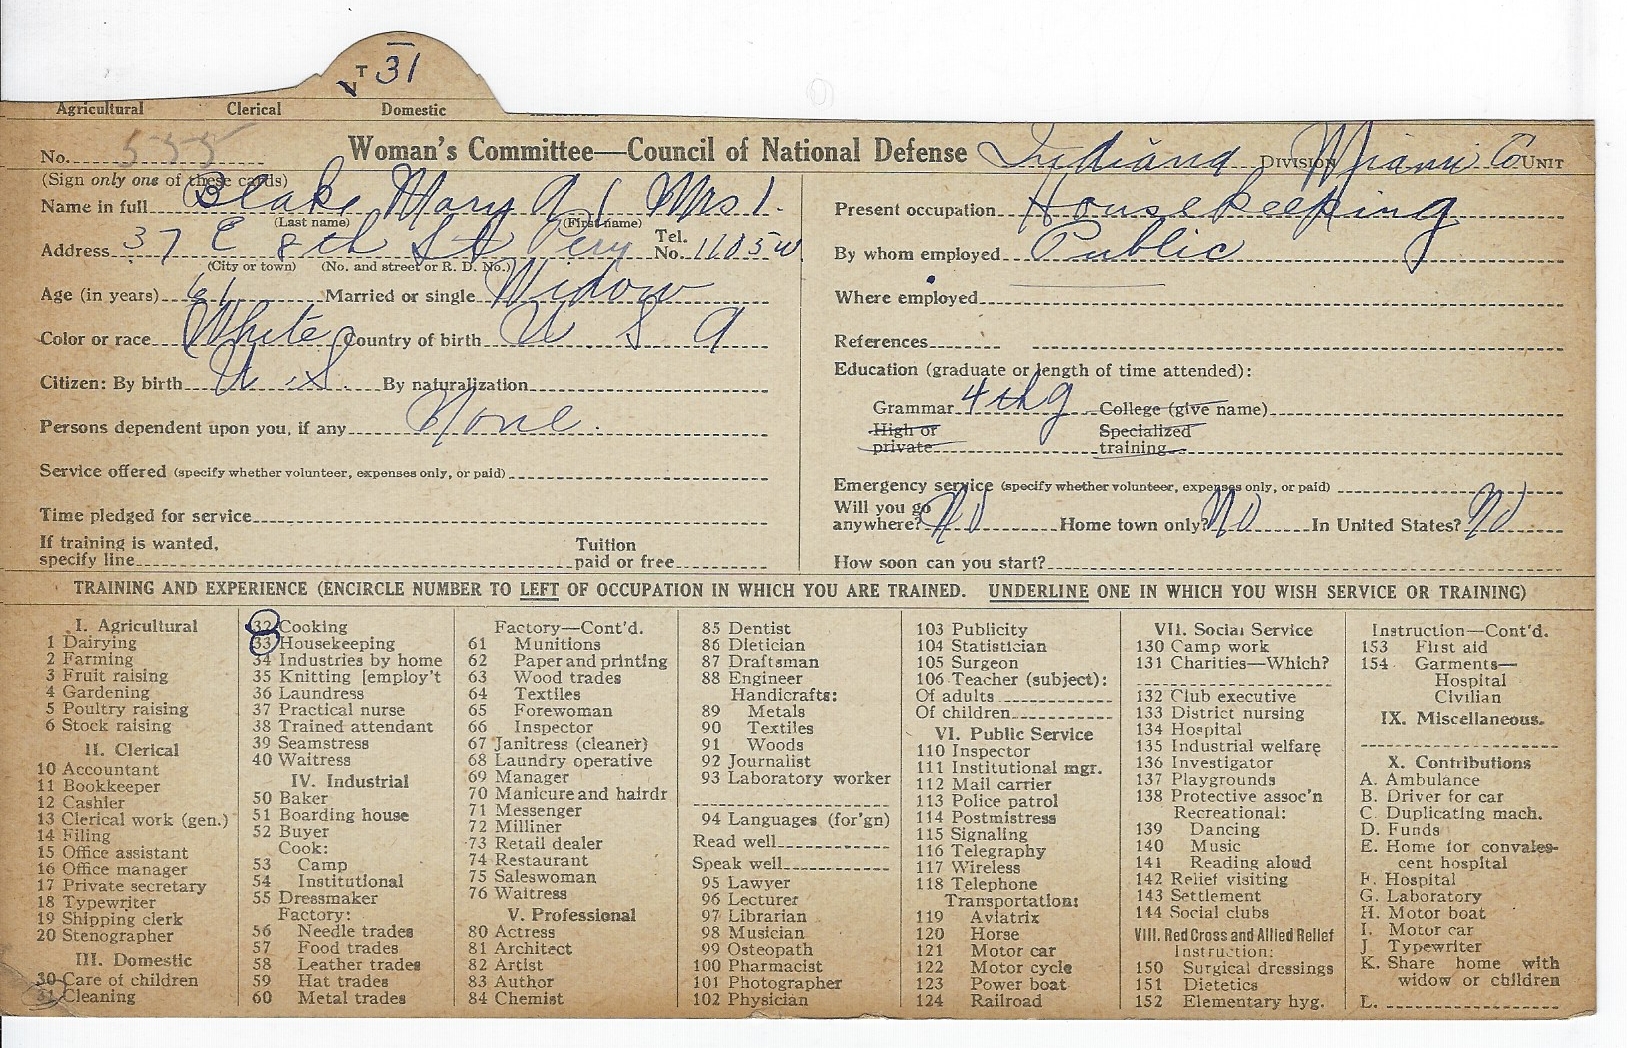 T 31
Agricultural Clerical Domestic
No. 555 Woman's Committee—Council of National Defense Indiana DIVISION Miami Co UNIT
(Sign only one of these cards)
Name in full Blake Mary A (Mrs).
(Last name) (First name)
Address 37 E 8th St Peru Tel. No. 1105w
(City or town) (No. and street or R. D. No.)
Age (in years) 61 Married or single Widow
Color or race White Country of birth U S A
Citizen: By birth U.S. By naturalization
Persons dependent upon you, if any None.
Service offered (specify whether volunteer, expenses only, or paid)
Time pledged for service
If training is wanted, specify line Tuition paid or free
Present occupation Housekeeping
By whom employed Public
Where employed
References
Education (graduate or length of time attended):
Grammar 4thg College (give name)
High or private Specialized training
Emergency service (specify whether volunteer, expenses only, or paid)
Will you go anywhere? No Home town only? No In United States? No
How soon can you start?
TRAINING AND EXPERIENCE (ENCIRCLE NUMBER TO LEFT OF OCCUPATION IN WHICH YOU ARE TRAINED. UNDERLINE ONE IN WHICH YOU WISH SERVICE OR TRAINING)
I. Agricultural
1 Dairying
2 Farming
3 Fruit raising
4 Gardening
5 Poultry raising
6 Stock raising
II. Clerical
10 Accountant
11 Bookkeeper
12 Cashier
13 Clerical work (gen.)
14 Filing
15 Office assistant
16 Office manager
17 Private secretary
18 Typewriter
19 Shipping clerk
20 Stenographer
III. Domestic
30 Care of children
31 Cleaning
32 Cooking
33 Housekeeping
34 Industries by home
35 Knitting [employ't
36 Laundress
37 Practical nurse
38 Trained attendant
39 Seamstress
40 Waitress
IV. Industrial
50 Baker
51 Boarding house
52 Buyer
Cook:
53 Camp
54 Institutional
55 Dressmaker
Factory:
56 Needle trades
57 Food trades
58 Leather trades
59 Hat trades
60 Metal trades
Factory—Cont'd.
61 Munitions
62 Paper and printing
63 Wood trades
64 Textiles
65 Forewoman
66 Inspector
67 Janitress (cleaner)
68 Laundry operative
69 Manager
70 Manicure and hairdr
71 Messenger
72 Milliner
73 Retail dealer
74 Restaurant
75 Saleswoman
76 Waitress
V. Professional
80 Actress
81 Architect
82 Artist
83 Author
84 Chemist
85 Dentist
86 Dietician
87 Draftsman
88 Engineer
Handicrafts:
89 Metals
90 Textiles
91 Woods
92 Journalist
93 Laboratory worker
94 Languages (for'gn)
Read well
Speak well
95 Lawyer
96 Lecturer
97 Librarian
98 Musician
99 Osteopath
100 Pharmacist
101 Photographer
102 Physician
103 Publicity
104 Statistician
105 Surgeon
106 Teacher (subject):
Of adults
Of children
VI. Public Service
110 Inspector
111 Institutional mgr.
112 Mail carrier
113 Police patrol
114 Postmistress
115 Signaling
116 Telegraphy
117 Wireless
118 Telephone
Transportation:
119 Aviatrix
120 Horse
121 Motor car
122 Motor cycle
123 Power boat
124 Railroad
VII. Social Service
130 Camp work
131 Charities—Which?
132 Club executive
133 District nursing
134 Hospital
135 Industrial welfare
136 Investigator
137 Playgrounds
138 Protective assoc'n
Recreational:
139 Dancing
140 Music
141 Reading aloud
142 Relief visiting
143 Settlement
144 Social clubs
VIII. Red Cross and Allied Relief
Instruction:
150 Surgical dressings
151 Dietetics
152 Elementary hyg.
Instruction—Cont'd.
153 First aid
154 Garments—
Hospital
Civilian
IX. Miscellaneous.
X. Contributions
A. Ambulance
B. Driver for car
C. Duplicating mach.
D. Funds
E. Home for convales-
cent hospital
F. Hospital
G. Laboratory
H. Motor boat
I. Motor car
J. Typewriter
K. Share home with
widow or children
L.